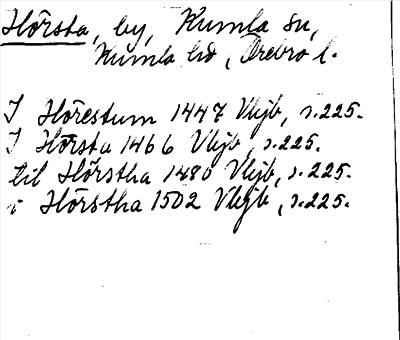 Hörsta, by, Kumla sn,
Kumla hd, Örebro l.
I Hörestum 1447 Vhjb, s.225.
I Hörsta 1466 Vhjb, s.225.
til Hörstha 1480 Vhjb, s.225.
i Hörstha 1502 Vhjb, s.225.